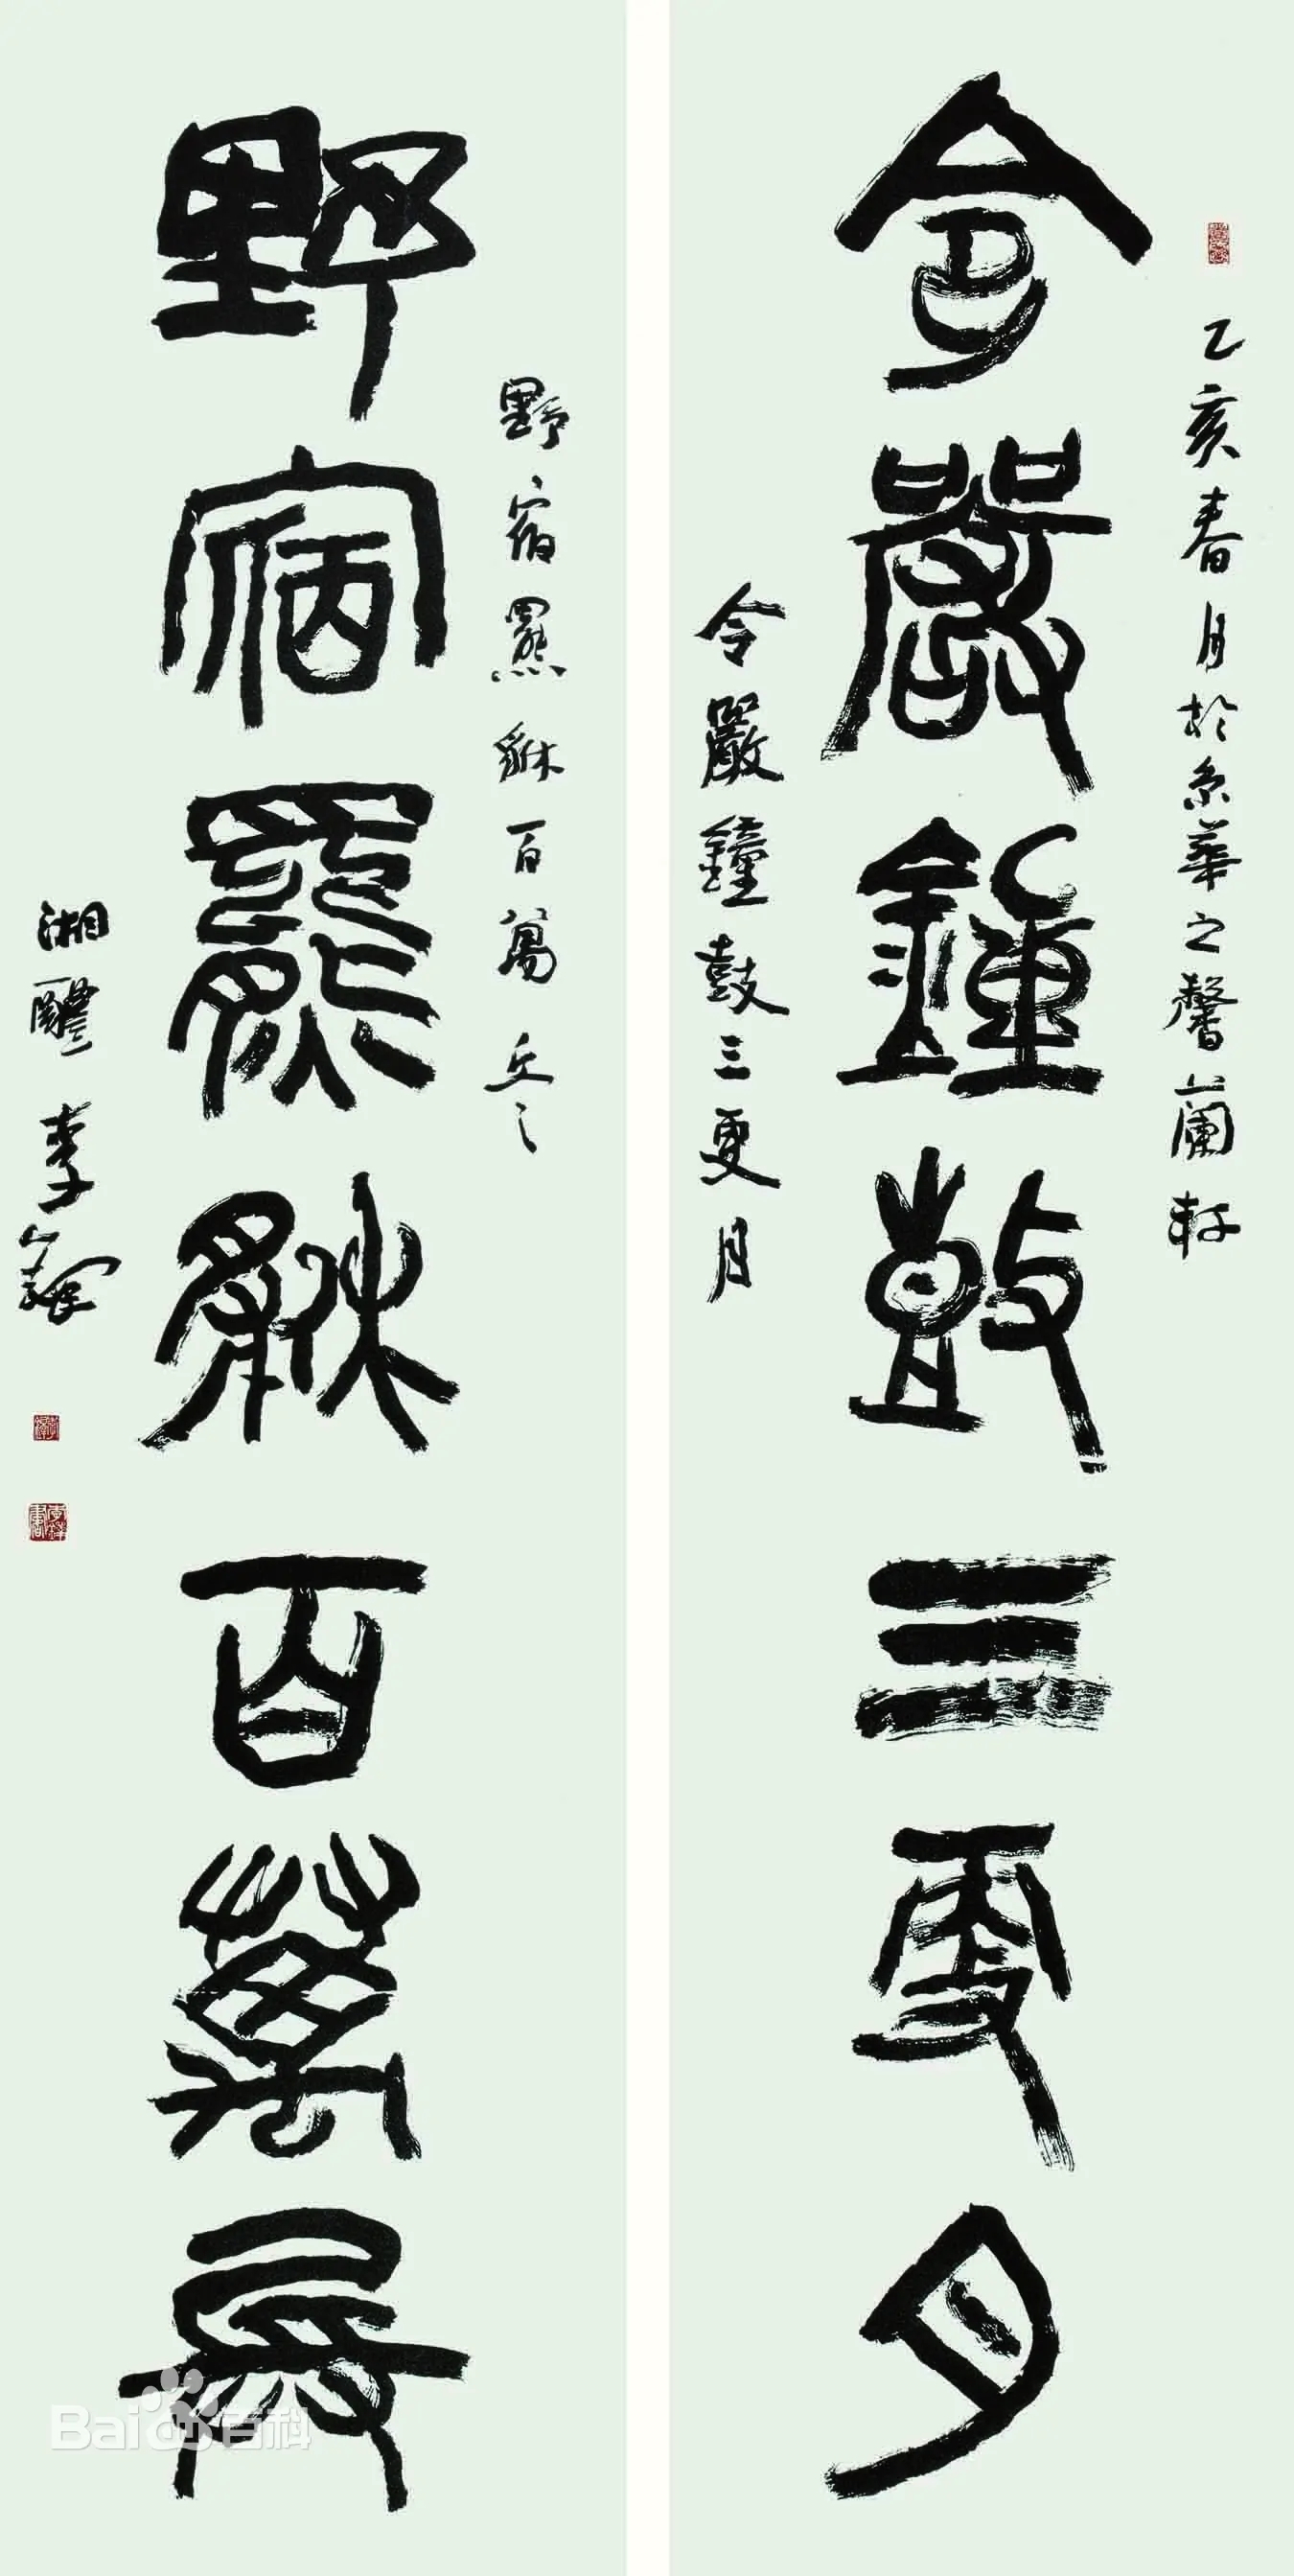 乙亥春月於京華之馨蘭軒
令嚴鐘鼓三更月
令嚴鐘鼓三更月
野宿羆貅百萬兵
野宿羆貅百萬兵
湘醴李鐸
Baidu百科